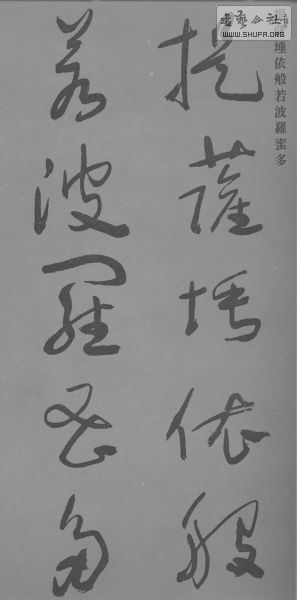 提薩埵依般
若波羅蜜多
埵依般若波羅蜜多
書藝公社
WWW.SHUFA.ORG